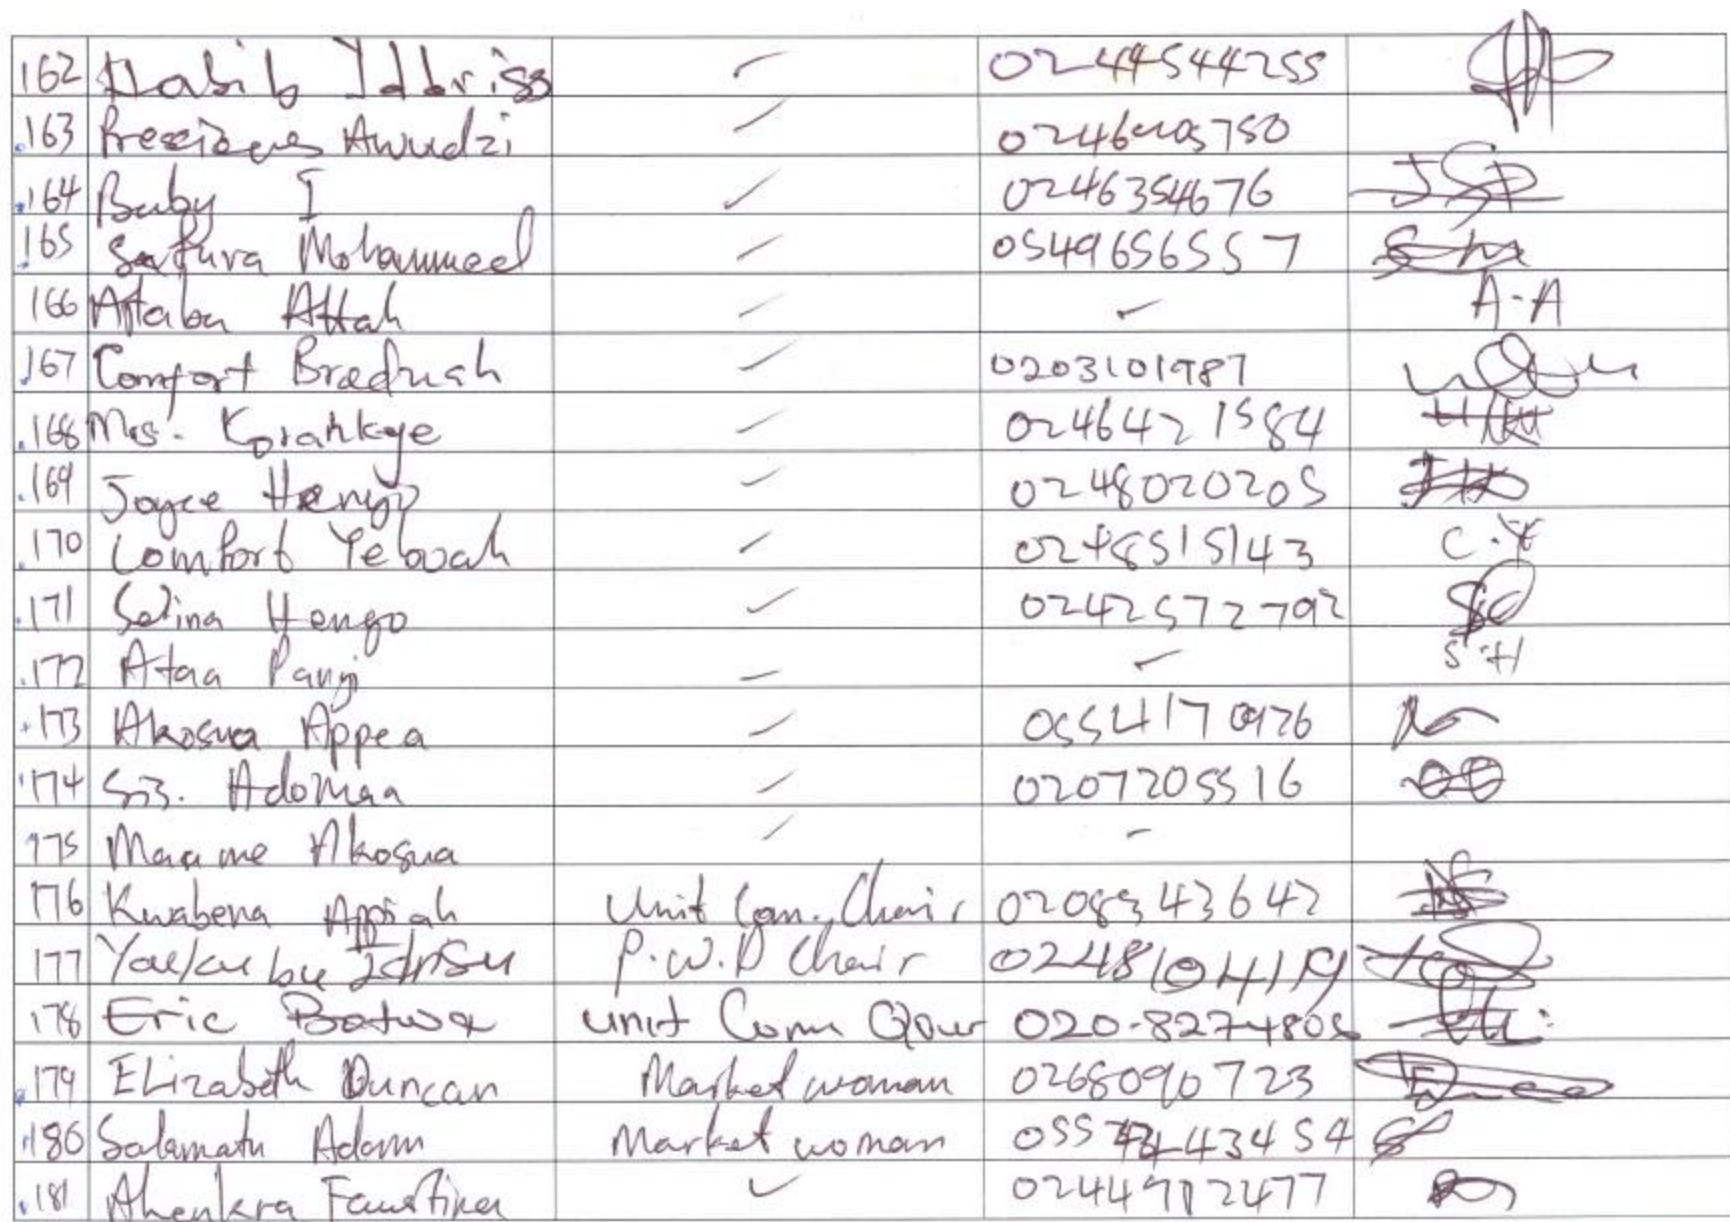 162 Habib Iddriss ✓ 0244544255
163 Awudzi ✓
164 Baby I ✓ 0246354676
165 Safura Mohammed ✓ 0549656557
166 Attah ✓ ✓ A-A
167 Comfort ✓ 0203101987
168 Mrs. Korankye ✓ 0246421584
169 Joyce Hengo ✓ 0248020205
170 Comfort Yeboah ✓ 0248515143 C.Y
171 Selina Hengo ✓ 0242572792
172 Ataa Panyi ✓ ✓ S.H
173 Akosua Appea ✓ 0554170926
174 Sis. Adomaa ✓ 0207205516
175 Maame Akosua ✓ -
176 Kwabena Appiah Unit Com. Chair 0208343642
177 Yakubu Idrisu P.W.D Chair
178 Eric unit Com
179 ELizabeth Duncan Market woman 0268090723
180 Salamatu Adam Market woman
181 Ahenkra Faustina ✓ 0244912477